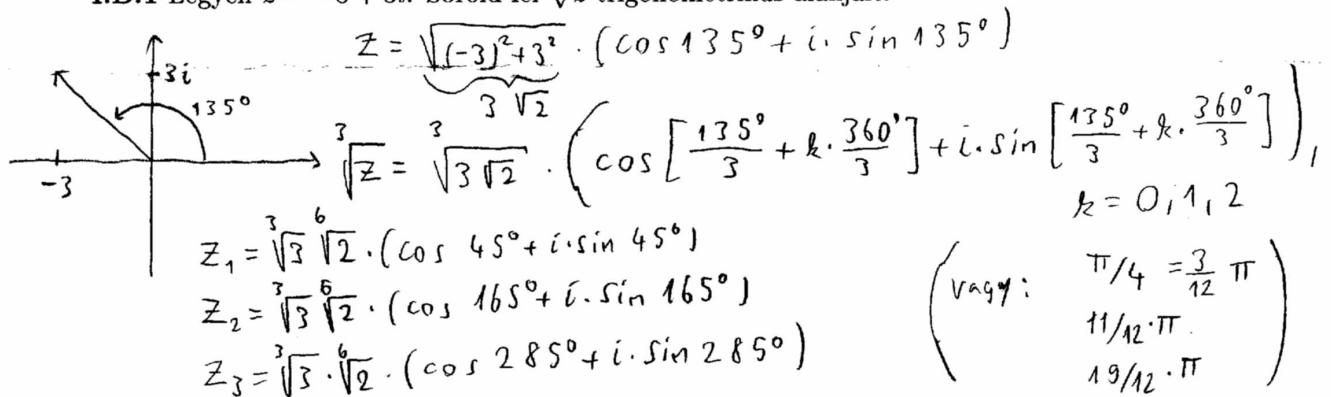 z = √((-3)²+3²) · (cos 135° + i. sin 135°)
3√2
3i
135°
-3
∛z = ∛(3√2) · (cos [135°/3 + k · 360°/3] + i. sin [135°/3 + k · 360°/3]),
k = 0,1,2
z₁ = ∛3 ⁶√2 · (cos 45° + i·sin 45°)
z₂ = ∛3 ⁶√2 · (cos 165° + i. sin 165°)
z₃ = ∛3 · ⁶√2 · (cos 285° + i. sin 285°)
(vagy: π/4 = 3/12 π
11/12·π.
19/12·π)